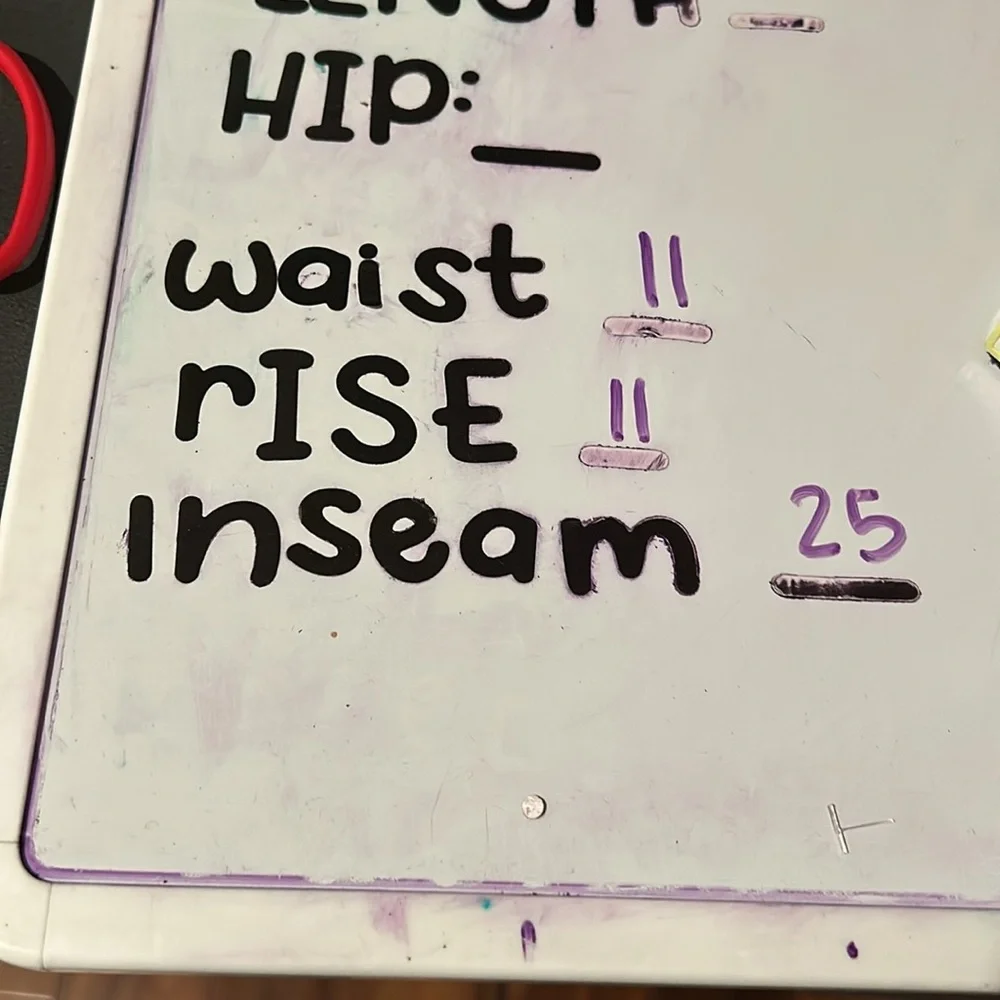 LENGTH
HIP:
waist 11
rISE 11
Inseam 25